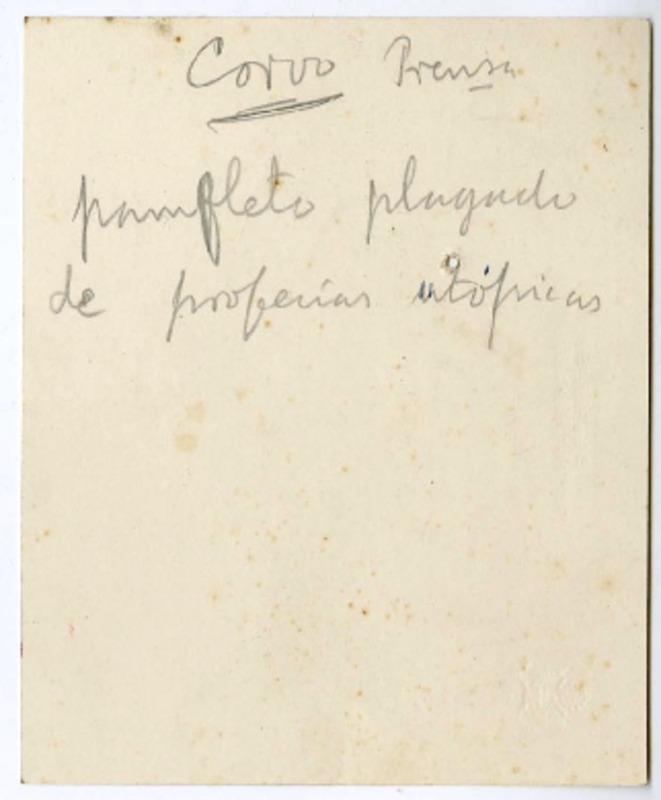 Corvo Prensa
pamfleto plagado
de profecías utópicas